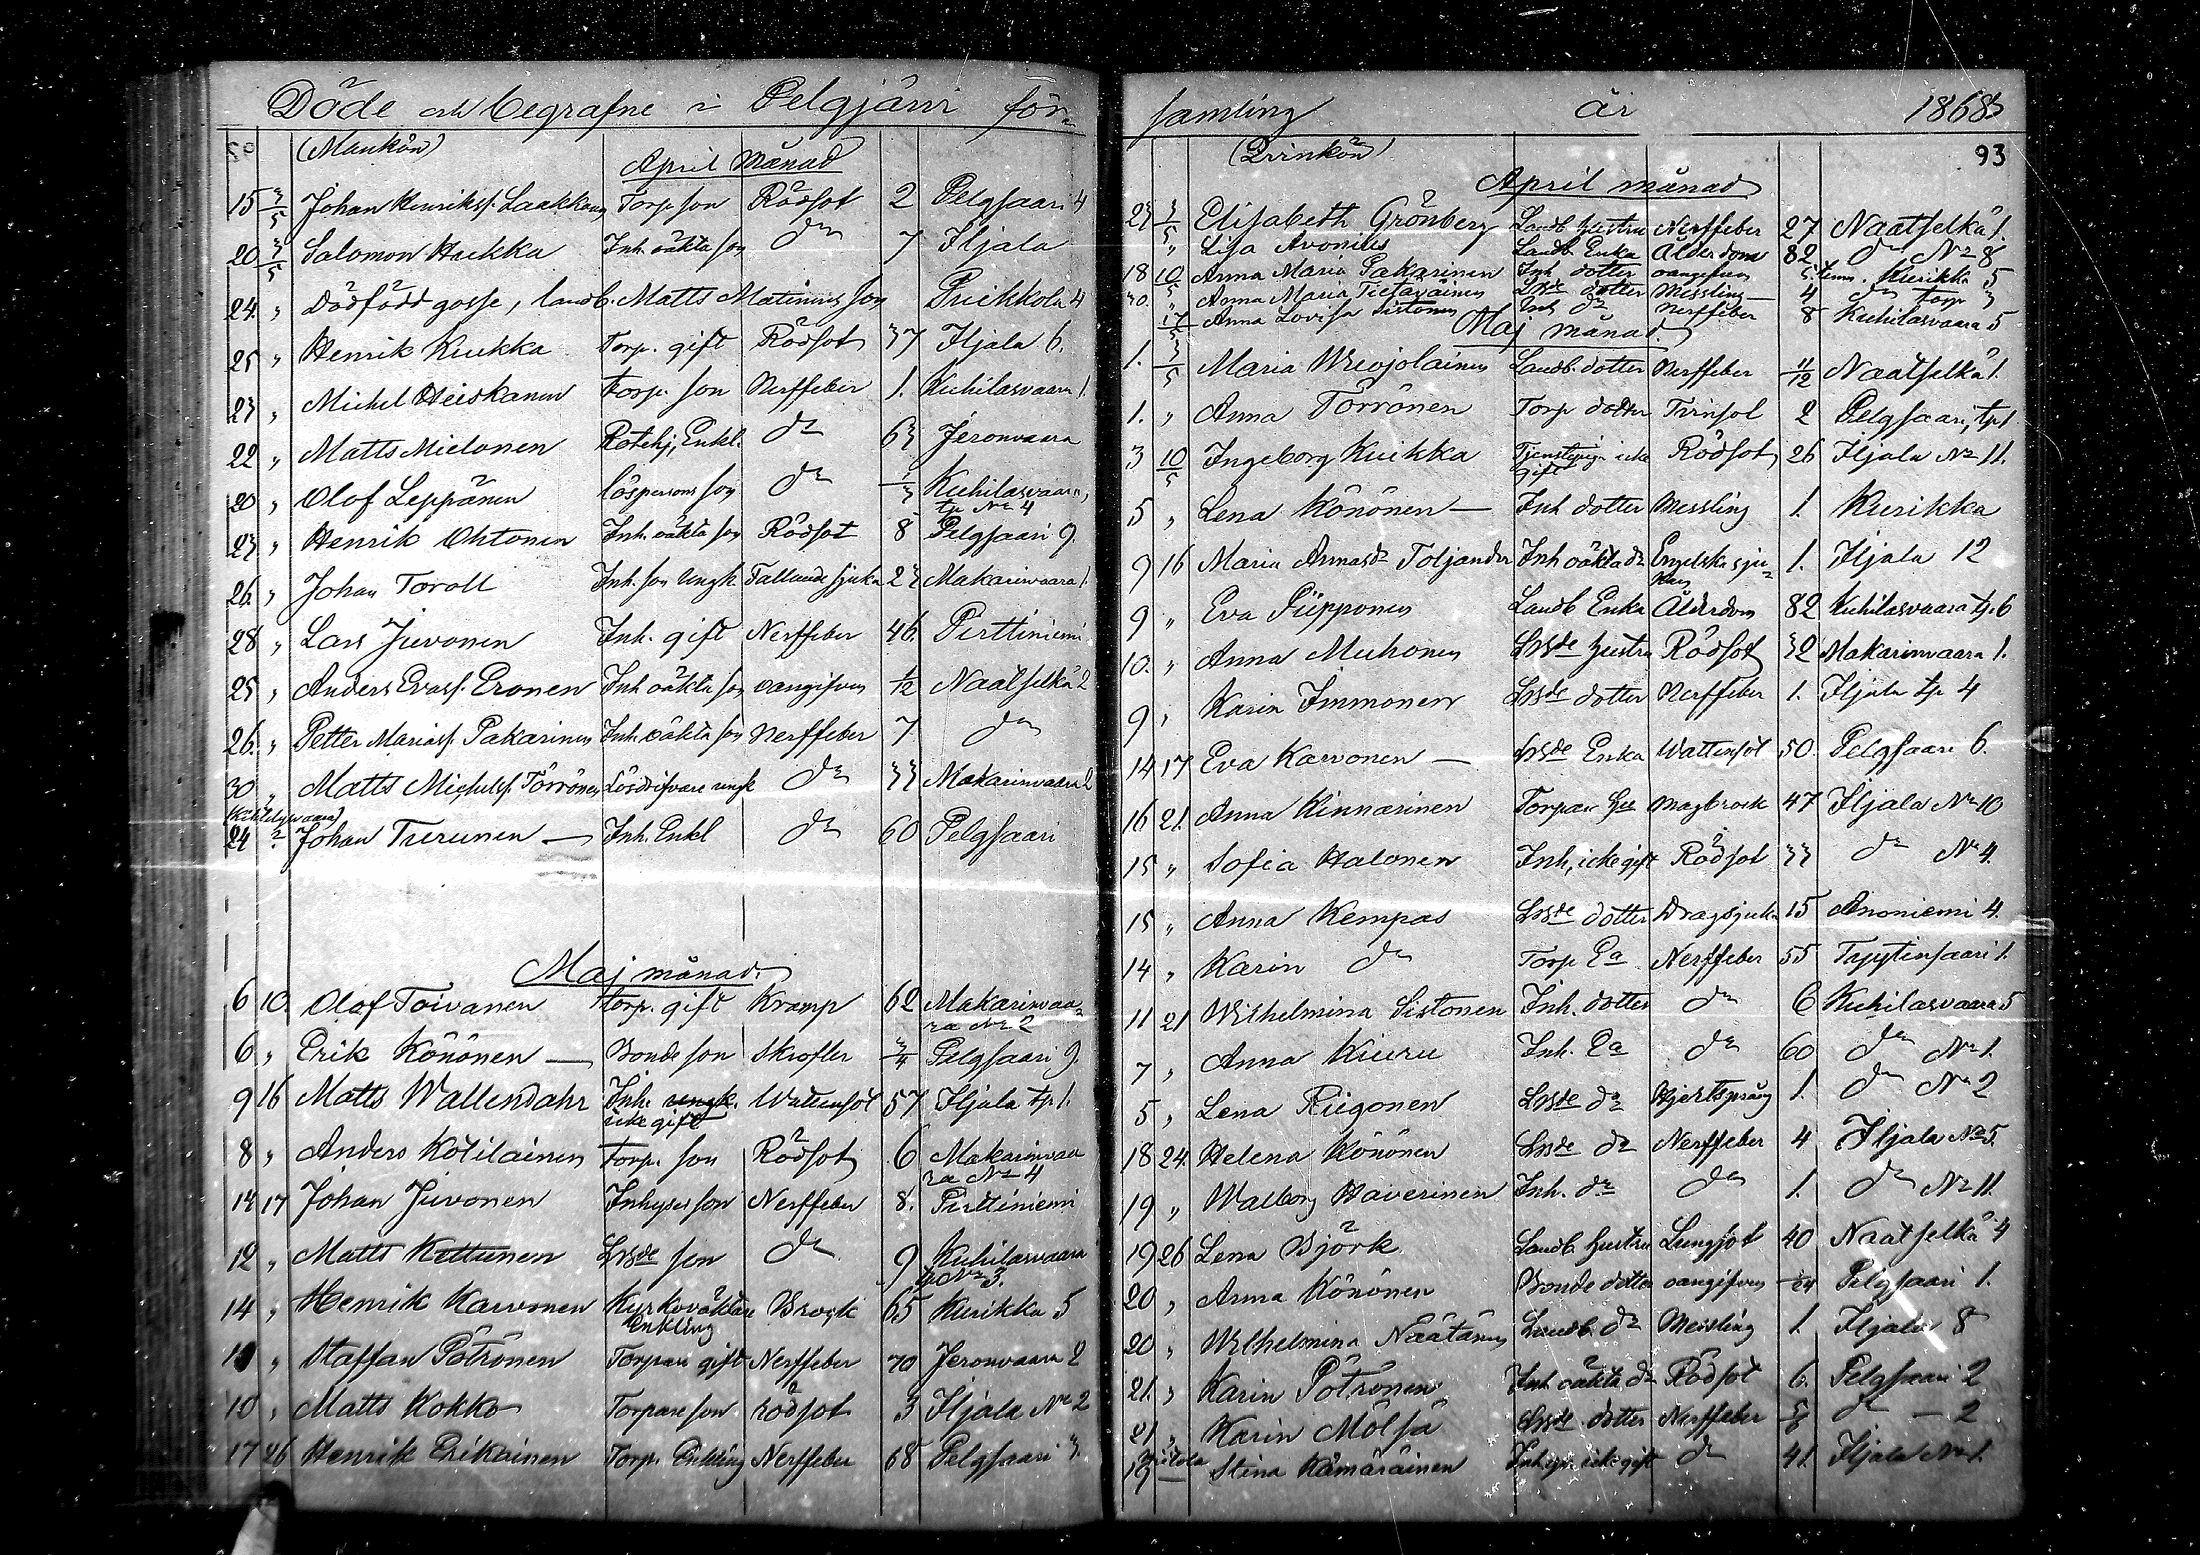 Döde och begrafne i Pelgjärvi för=
(Mankön)
April månad
15 3/5 Johan Henriksf. Laakkonen Torp son Rödsot 2 Pelgjaari 4
20 3/5 Salomon Haikka Inh. oäkta son do 7 Iljala
24 " Dödfödd gosse, landb. Matts Matininens son Puikkola 4
25 " Henrik Kuikka Torp. gift Rödsot 37 Iljala 6.
23 " Michel Heiskanen Torp. son Nerffeber 1. Kuhilasvaara 1.
22 " Matts Mielonen Rotehj. Enkl. do 63 Jeronvaara
20 " Olof Leppänen löspersons son do 1/3 Kuhilasvaara,
tp No 4
23 " Henrik Ohtonen Inh. oäkta son Rödsot 8 Pelgjaari 9.
26. " Johan Toroll Inh. son Ungk. Fallande sjuka 23 Makarinvaara 1.
28 " Lars Juvonen Inh. gift Nerffeber 46. Pirttiniemi
25 " Anders Evasf. Eronen Inh oäkta son oangifven 1/12 Naatselkä 2
26. " Petter Mariasf. Pakarinen Inh. oäkta son Nerffeber 7 do
30 " Matts Michelsf. Törrönen Lösdrifvare ungk do 33 Makarinvaara 2
24 ? Johan Turunen — Inh. Enkl do 60 Pelgjaari
Maj månad.
6 10. Olof Toivanen torp. gift Kramp 62 Makarinvaa=
ra No 2
6 " Erik Könönen — Bonde son Skrofler 3/4 Pelgjaari 9.
9 16 Matts Wallendahr Inh. ungk. Wattensot 57 Iljala tp 1.
icke gift
8 " Anders Kotilainen Torp. son Rödsot 6 Makarinvaa
ra No 4
14 17 Johan Juvonen Inhyses son Nerffeber 8. Pirttiniemi
12 " Matts Kettunen son do 9 Kuhilasvaara
tp No 3.
14 " Henrik Karvonen Kyrkoväktare Brock 65 Kurikka 5
Enkling
10 " Staffan Pötrönen Torpare gift Nerffeber 70 Jeronvaara 2
10 " Matts Kokko Torpare son rödsot 3 Iljala No 2
17 26 Henrik Erikäinen Torp. Enkling Nerffeber 68 Pelgjaari 3.
samling år 1868
93
(Qvinkön)
April månad
23 3/5 Elisabeth Grönberg Landb. hustru Nerffeber 27 Naatselkä 1.
" Lisa Avonius Landb. Enka Ålderdom 82 do No 8
18 10/5 Anna Maria Pakarinen Inh dotter oangifven Kurikka 5
30. Anna Maria Tietäväinen dotter Messling — 4 do torp 3
17/5 Anna Lovisa Sistonen Inh do Nerffeber 8 Kuhilasvaara 5
Maj månad.
1. 3/5 Maria Wrevjolainen Landb. dotter Nerffeber 11/12 Naatselkä 1.
1. " Anna Törrönen Torp dotter Tvinsot 2 Pelgjaari, tp 1
3 10/5 Ingeborg Kuikka Tjenstepiga icke Rödsot 26 Iljala No 11.
gift
5 " Lena Könönen — Inh dotter Messling 1. Kurikka
9 16 Maria Annasdr Toljander Inh oäkta dr Engelska sju= 1. Iljala 12
kan
9 " Eva Piipponen Landb. Enka Ålderdom 82 Kuhilasvaara tp. 6
10. " Anna Muhonen hustru Rödsot 32 Makarinvaara 1.
9 " Karin Immonen dotter Nerffeber 1. Iljala tp 4
14 17 Eva Karvonen — Enka Wattensot 50. Pelgjaari 6.
16 21. Anna Kinnarinen Torpare Hu Magbrock 47 Iljala No 10
15 " Sofia Halonen Inh, icke gift Rödsot 33 do No 4.
15 " Anna Kempas dotter Dragsjuka 15 Anoniemi 4.
14 " Karin do Torp Ea Nerffeber 55 Tyytinsaari 1.
11 21 Wilhelmina Sistonen Inh. dotter do 6 Kuhilasvaara 5
7 " Anna Kiuru Inh. Ea do 60 do No 1.
5 " Lena Riigonen dr Hjertsprång 1. do No 2
18 24. Helena Könönen dr Nerffeber 4 Iljala No 5.
19 " Walborg Haverinen Inh. dr do 1. do No 11.
19 26 Lena Björk Landb. hustru Lungsot 40 Naatselkä 4
20 " Anna Könönen Bonde dotter oangifven Pelgjaari 1.
20 " Wilhelmina Näätänen Landb. dr Messling 1. Iljala 8
21. " Karin Pötrönen Inh oäkta dr Rödsot 6. Pelgjaari 2
21 " Karin Mölsä dotter Nerffeber do — 2
19 — Stina Kämäräinen Inhys. icke gift do 41. Iljala No 1.